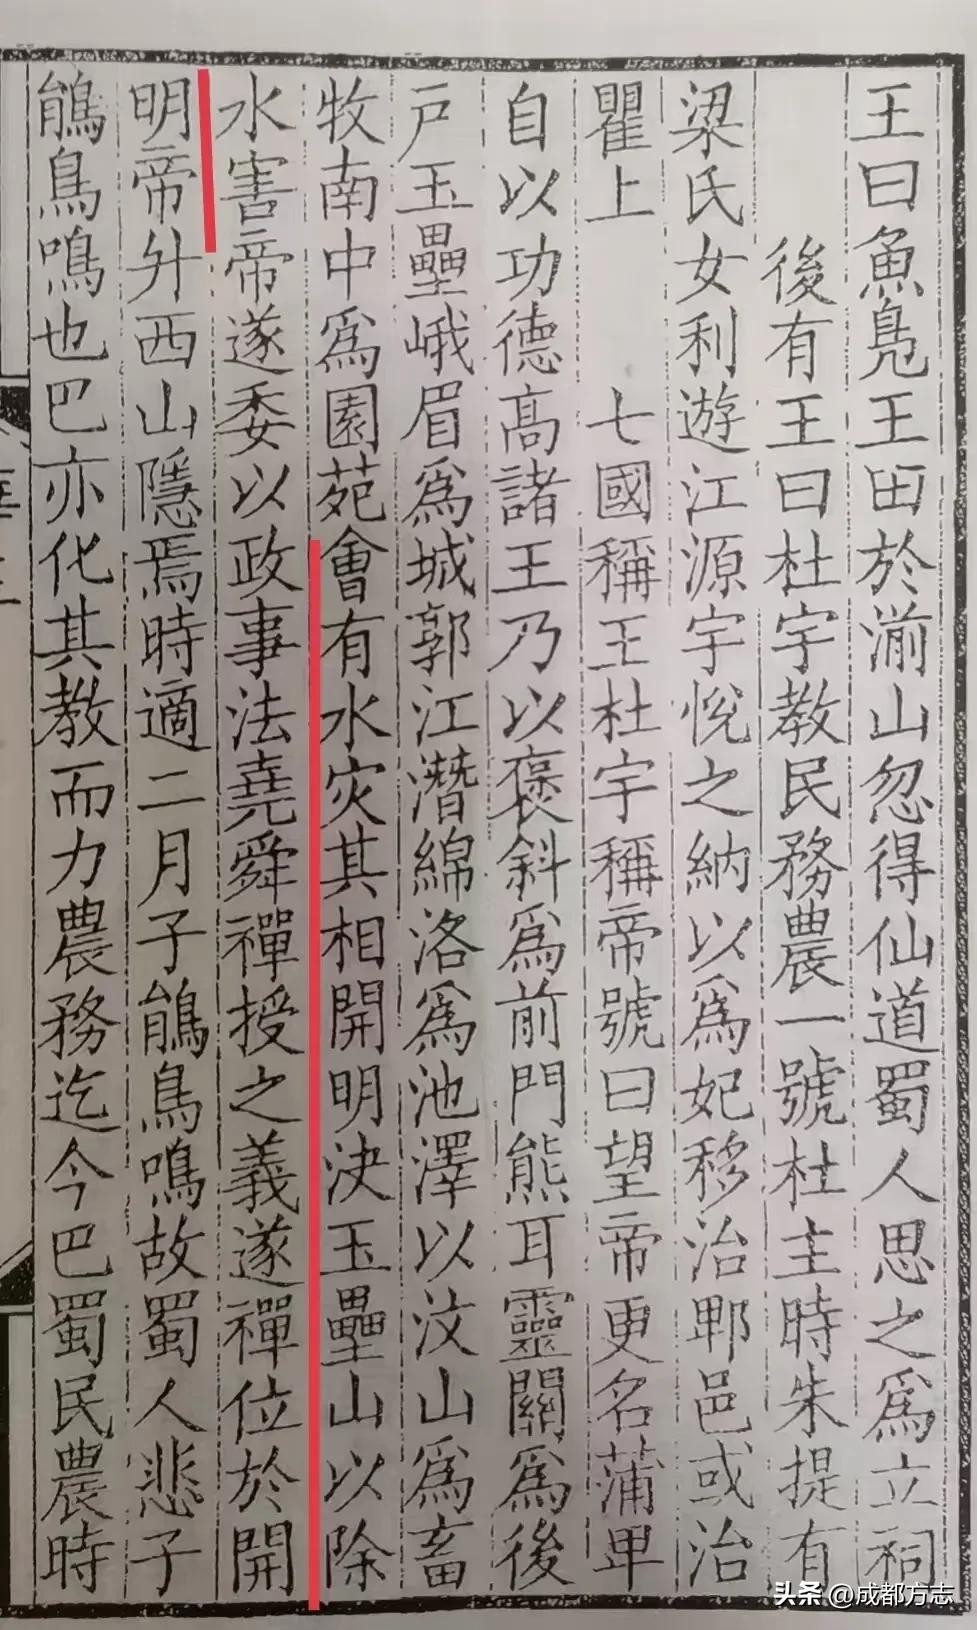 王曰魚鳧王田於湔山忽得仙道蜀人思之為立祠
後有王曰杜宇教民務農一號杜主時朱提有
梁氏女利遊江源宇悅之納以為妃移治郫邑或治
瞿上　七國稱王杜宇稱帝號曰望帝更名蒲卑
自以功德高諸王乃以褒斜為前門熊耳靈關為後
戶玉壘峨眉為城郭江潛綿洛為池澤以汶山為畜
牧南中為園苑會有水災其相開明決玉壘山以除
水害帝遂委以政事法堯舜禪授之義遂禪位於開
明帝升西山隱焉時適二月子鵑鳥鳴故蜀人悲子
鵑鳥鳴也巴亦化其教而力農務迄今巴蜀民農時
头条 @成都方志